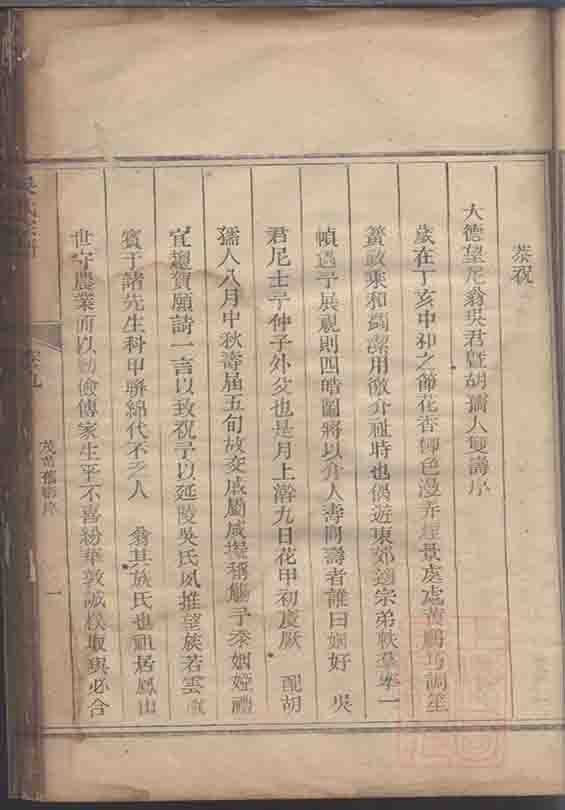 恭祝
大德望尼翁吳君暨胡孺人雙壽序
歲在丁亥中和之節花香柳色漫弄韶景處處黃鸝巧調笙
簧敢乘和蠲潔用徼介祉時也偶遊東郊適宗弟軼羣率一
幀過予展視則四皓圖將以介人壽問壽者誰曰姻好 吳
君尼士予仲子外父也是月上澣九日花甲初度厥 配胡
孺人八月中秋壽屆五旬故交戚屬咸擬稱觴予忝姻婭禮
宜趨賀願請一言以致祝予以延陵吳氏夙推望族若雲
賓于諸先生科甲聯綿代不乏人 翁其族氏也祖居鳳山
世守農業而以勤儉傳家生平不喜紛華敦誠樸取與必合
卷九
茂
序
一